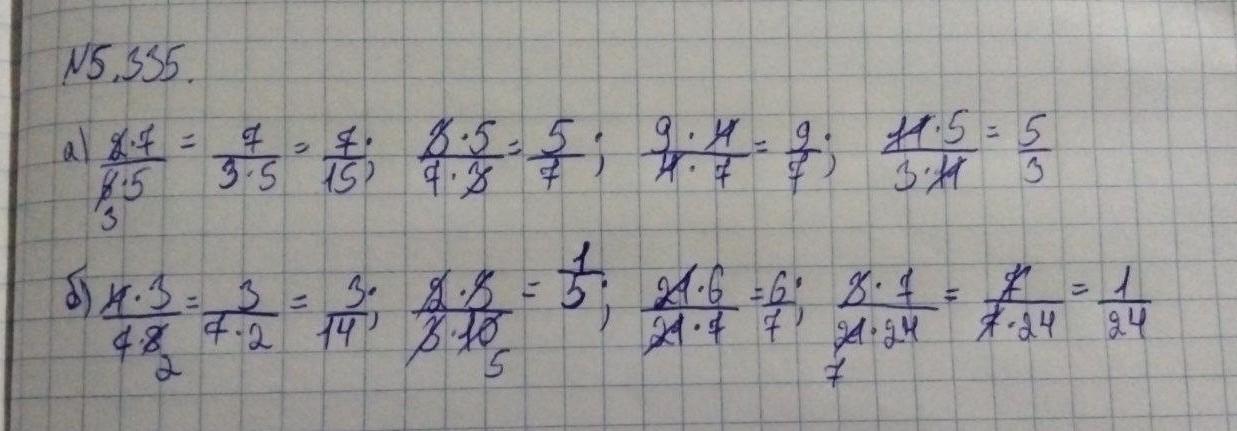 №5.335.
а) 2·7/6·5 = 7/3·5 = 7/15; 3·5/7·3 = 5/7; 9·4/4·7 = 9/7; 11·5/3·11 = 5/3
3
б) 4·3/7·8 = 3/7·2 = 3/14; 2·3/3·10 = 1/5; 21·6/21·7 = 6/7; 3·7/21·24 = 7/7·24 = 1/24
2 5 7